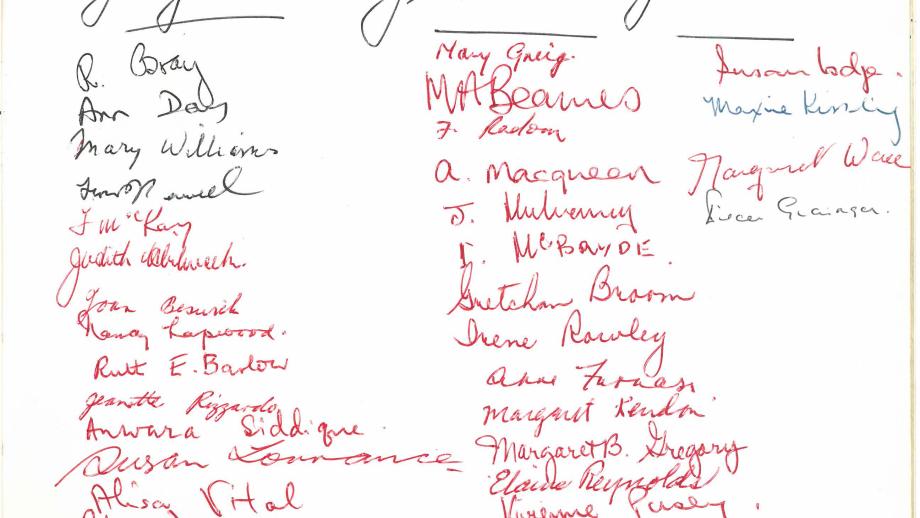 R. Bray
Ann Daes
Mary Williams
F McKay
Judith
Joan
Nancy Lapwood.
Ruth E. Barlow
Jeanette Rizzardo
Anwara Siddique.
Susan Lorrance
Alison Vital
Mary Greig.
MABeames
F. Radom
A. Macqueen
J. Mulvenny
I. McBRYDE
Gretchen Broom
Irene Rowley
Anne Furnass
Margaret Kendon
Margaret B. Gregory
Elaine Reynolds
Pusey.
Susan Lodge.
Maxine Kissling
Margaret
Grainger.